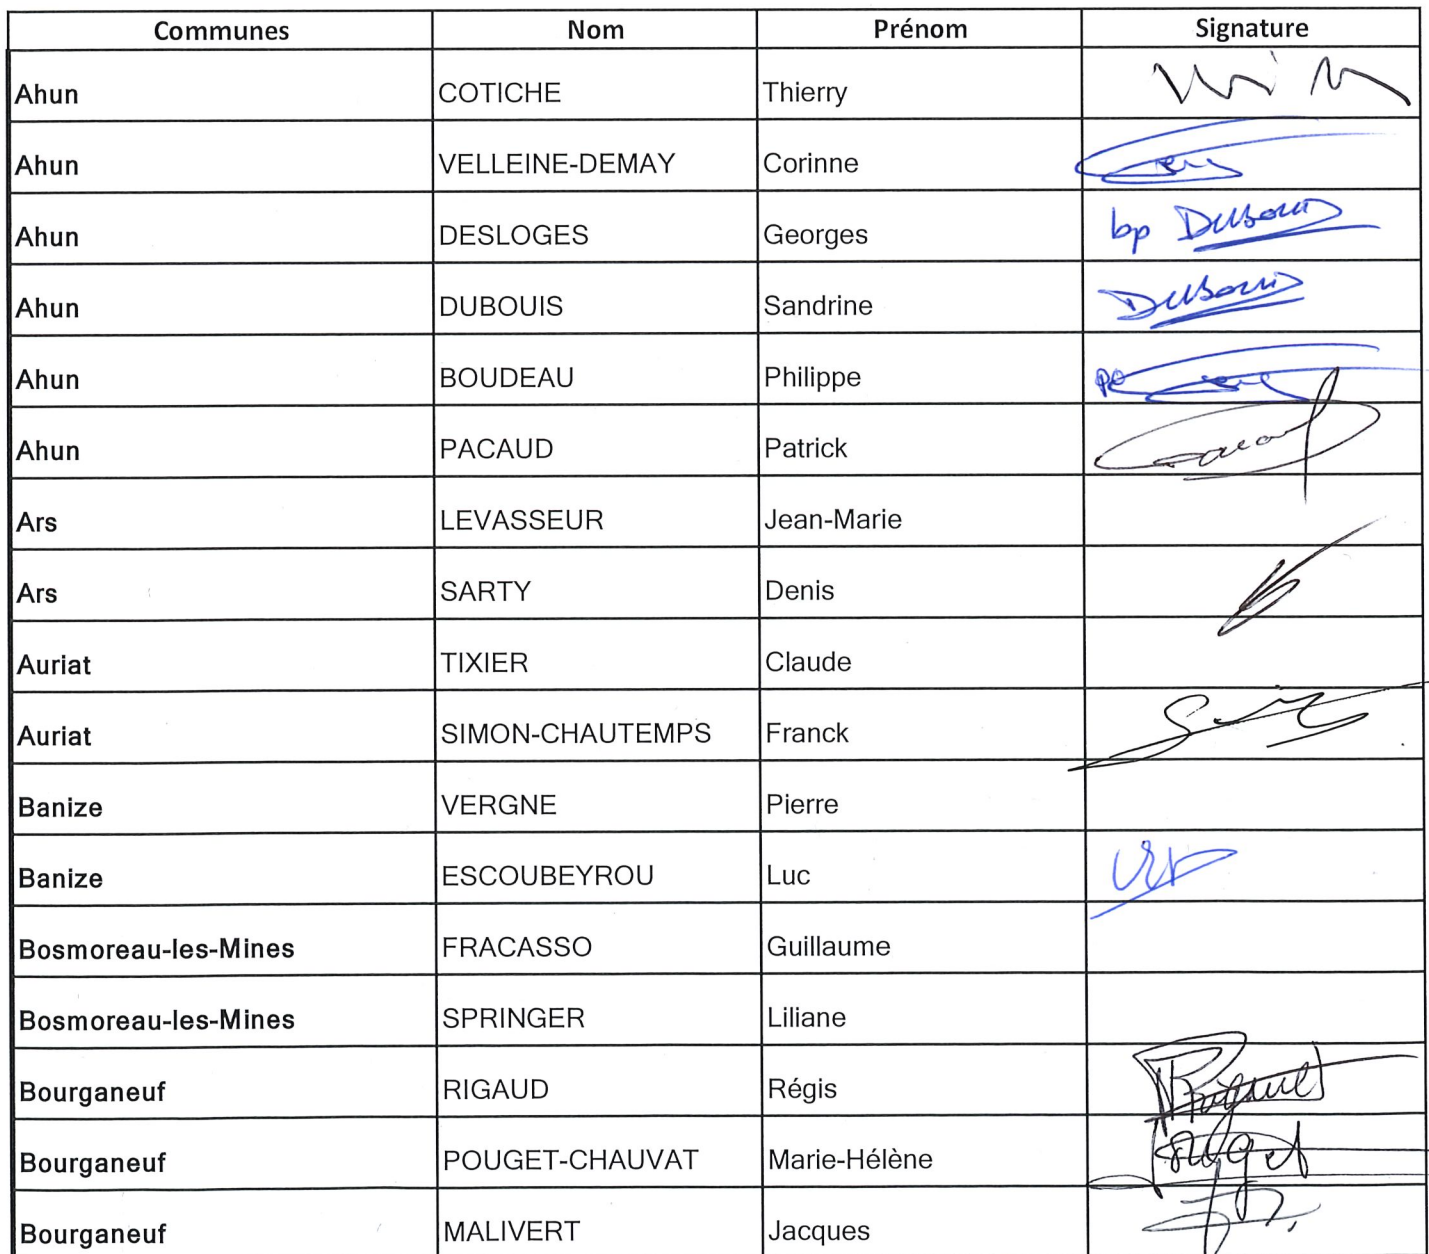 Communes Nom Prénom Signature
Ahun COTICHE Thierry
Ahun VELLEINE-DEMAY Corinne
Ahun DESLOGES Georges bp Dubouis
Ahun DUBOUIS Sandrine Dubouis
Ahun BOUDEAU Philippe po
Ahun PACAUD Patrick
Ars LEVASSEUR Jean-Marie
Ars SARTY Denis
Auriat TIXIER Claude
Auriat SIMON-CHAUTEMPS Franck
Banize VERGNE Pierre
Banize ESCOUBEYROU Luc
Bosmoreau-les-Mines FRACASSO Guillaume
Bosmoreau-les-Mines SPRINGER Liliane
Bourganeuf RIGAUD Régis Rigaud
Bourganeuf POUGET-CHAUVAT Marie-Hélène Pouget
Bourganeuf MALIVERT Jacques